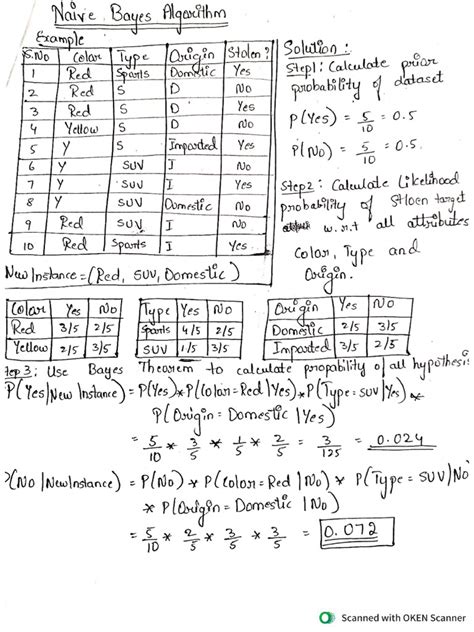 Naive Bayes Algorithm
Example
S.No Color Type Origin Stolen?
1 Red Sports Domestic Yes
2 Red S D No
3 Red S D Yes
4 Yellow S D No
5 Y S Imported Yes
6 Y SUV I No
7 Y SUV I Yes
8 Y SUV Domestic No
9 Red SUV I No
10 Red Sports I Yes
New Instance = (Red, SUV, Domestic)
Solution:
Step1: Calculate prior
probability of dataset
P(Yes) = 5/10 = 0.5
P(No) = 5/10 = 0.5.
Step2: Calculate Likelihood
probability of Stloen target
w.r.t all attributes
Color, Type and
Origin.
Color Yes No
Red 3/5 2/5
Yellow 2/5 3/5
Type Yes No
Sports 4/5 2/5
SUV 1/5 3/5
Origin Yes No
Domestic 2/5 3/5
Imported 3/5 2/5
tep3: Use Bayes Theorem to calculate propability of all hypothesis
P(Yes|New Instance) = P(Yes)*P(Color=Red|Yes)*P(Type=SUV|Yes)*
P(Origin=Domestic|Yes)
= 5/10 * 3/5 * 1/5 * 2/5 = 3/125 = 0.024
P(No|NewInstance) = P(No)*P(Color=Red|No)*P(Type=SUV|No
*P(Origin=Domestic|No)
= 5/10 * 2/5 * 3/5 * 3/5 = 0.072
Scanned with OKEN Scanner